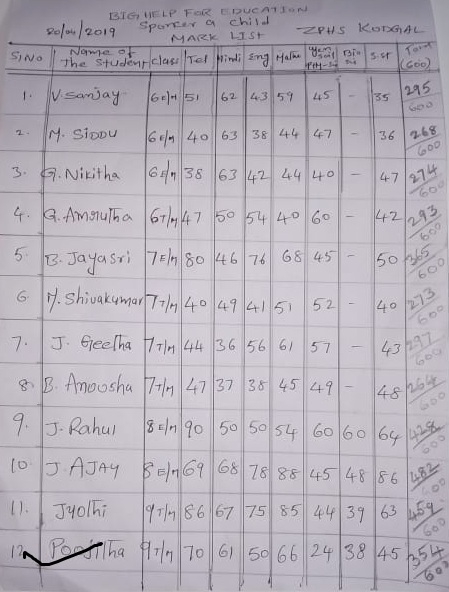 BIG HELP FOR EDUCATION
20/04/2019 Sponcer a child ZPHS KODGAL
MARK LIST
Sl No Name of The Student Class Tel Hindi Eng Maths Bio S.st Total (600)
1. V. Sanjay 6E/M 51 62 43 59 45 - 35 295/600
2. M. SIDDU 6E/M 40 63 38 44 47 - 36 268/600
3. G. Nikitha 6E/M 38 63 42 44 40 - 47 274/600
4. G. Amrutha 6T/M 47 50 54 40 60 - 42 293/600
5. B. Jayasri 7E/M 80 46 76 68 45 - 50 365/600
6. M. Shivakumar 7T/M 40 49 41 51 52 - 40 273/600
7. J. Geetha 7T/M 44 36 56 61 57 - 43 297/600
8. B. Anousha 7T/M 47 37 38 45 49 - 48 264/600
9. J. Rahul 8E/M 90 50 50 54 60 60 64 428/600
10 J. AJAY 8E/M 69 68 78 88 45 48 86 482/600
11. Jyothi 9T/M 86 67 75 85 44 39 63 459/600
12 Poojitha 9T/M 70 61 50 66 24 38 45 354/600